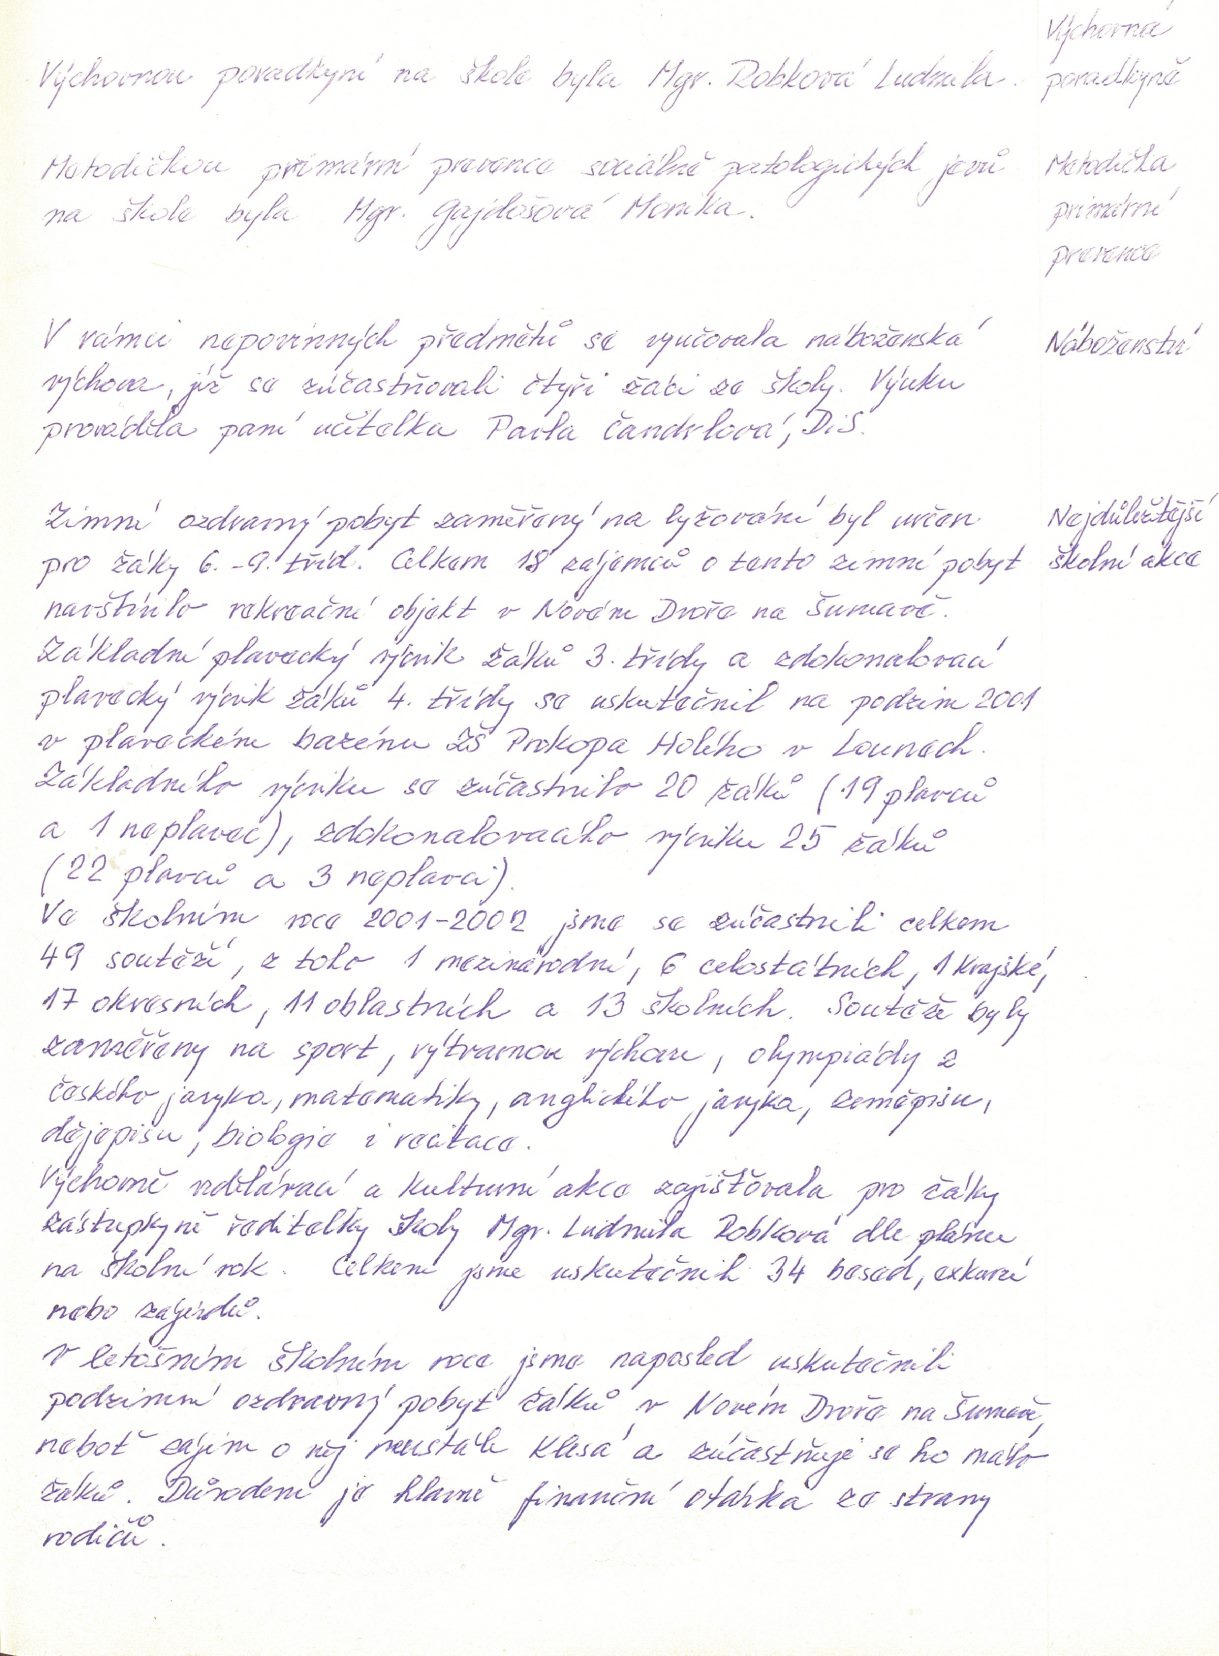 Výchovná
Výchovnou poradkyní na škole byla Mgr. Robková Ludmila.
poradkyně
Metodičkou primární prevence sociálně patologických jevů
na škole byla Mgr. Gajdošová Monika.
Metodička
primární
prevence
V rámci nepovinných předmětů se vyučovala náboženská
výchova, jíž se zúčastňovali čtyři žáci ze školy. Výuku
prováděla paní učitelka Pavla DiS.
Náboženství
Zimní ozdravný pobyt zaměřený na lyžování byl určen
pro žáky 6.-9. tříd. Celkem 18 zájemců o tento zimní pobyt
navštívilo rekreační objekt v Novém Dvoře na Šumavě.
Nejdůležitější
školní akce
Základní plavecký výcvik žáků 3. třídy a zdokonalovací
plavecký výcvik žáků 4. třídy se uskutečnil na podzim 2001
v plaveckém bazénu ZŠ Prokopa Holého v Lounech.
Základního výcviku se zúčastnilo 20 žáků (19 plavců
a 1 neplavec), zdokonalovacího výcviku 25 žáků
(22 plavců a 3 neplavci).
Ve školním roce 2001-2002 jsme se zúčastnili celkem
49 soutěží, z toho 1 mezinárodní, 6 celostátních, 1 krajské,
17 okresních, 11 oblastních a 13 školních. Soutěže byly
zaměřeny na sport, výtvarnou výchovu, olympiády z
českého jazyka, matematiky, anglického jazyka, zeměpisu,
dějepisu, biologie i recitace.
Výchovně vzdělávací a kulturní akce zajišťovala pro žáky
zástupkyně ředitelky školy Mgr. Ludmila Robková dle plánu
na školní rok. Celkem jsme uskutečnili 34 besed, exkurzí
nebo zájezdů.
V letošním školním roce jsme naposled uskutečnili
podzimní ozdravný pobyt žáků v Novém Dvoře na Šumavě,
neboť zájem o něj neustále klesá a zúčastňuje se ho málo
žáků. Důvodem je hlavně finanční otázka ze strany
rodičů.